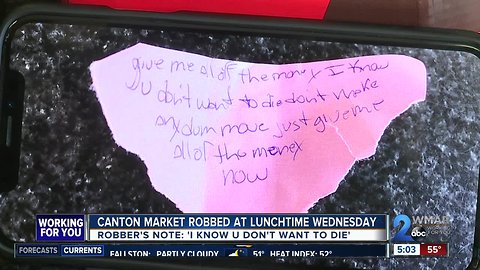 give me all of the money I know
u don't want to die don't make
any dum move just give me
all of the money
now
WORKING
FOR YOU
CANTON MARKET ROBBED AT LUNCHTIME WEDNESDAY
ROBBER'S NOTE: 'I KNOW U DON'T WANT TO DIE'
2 WMAR
abc
5:03 55°
FORECASTS CURRENTS FALLSTON: PARTLY CLOUDY 51° HEAT INDEX: 52°